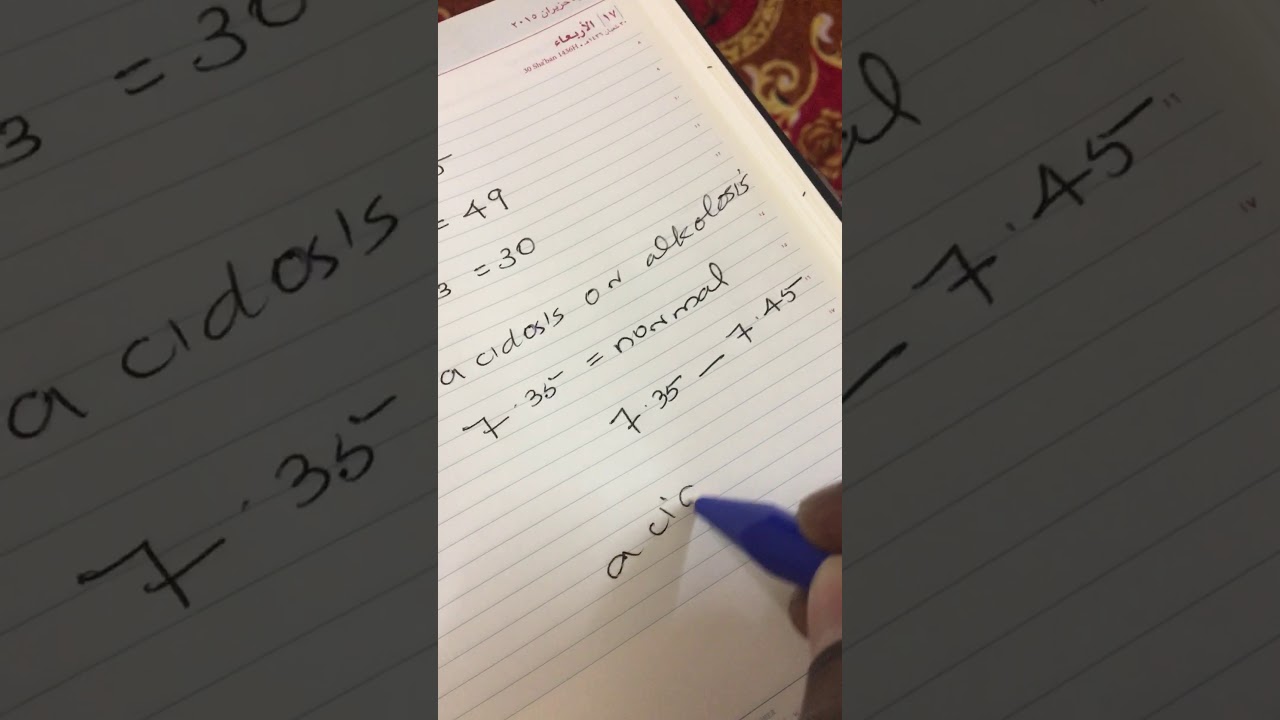 حزيران ٢٠١٥
١٧ الأربعاء
30 Sha'ban 1436H
5
= 49
3 = 30
acidosis or alkolosis
7.35 = normal
7.35 — 7.45
acic